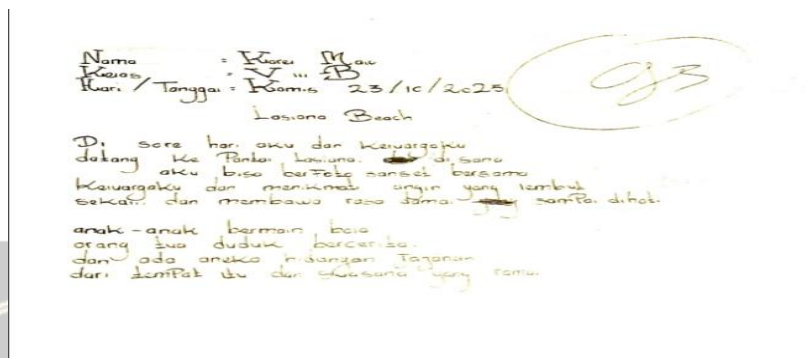 Nama : Karei Mau
Kelas : V ... B
Hari / Tanggal : Kamis 23/10/2025
93
Lasiana Beach
Di sore hari aku dan keluargaku
datang ke Pantai Lasiana. di sana
aku bisa berfoto sanset bersama
keluargaku dan menikmati angin yang lembut
sekali. dan membawa rasa damai sampai dihati.
anak-anak bermain bola
orang tua duduk bercerita.
dan ada aneka hidangan
dari tempat itu dan suasana yang ramai